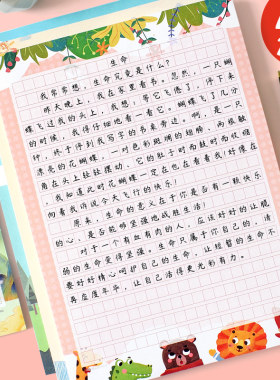 生命
我常常想，生命究竟是什么？
昨天晚上，我在家里看书。忽然，一只蝴
蝶飞过我的头上，我想，等它飞倦了，停下来
的时候，我得仔细地看一看它。蝴蝶飞了几分
钟，终于停到我写字的书桌旁边，啊，是一只
漂亮的花蝴蝶，一对色彩斑斓的翅膀，两根触
角在头上轻轻摆动，它的肚子时而鼓时而收缩
，我知道此时花蝴蝶一定在也在看着我！好像在
向着我诉说今天飞行的快乐！
原来，生命的意义在于你是否有一颗快乐
的心，是否能够坚强地战胜生活！
对于一个有血有肉的人，应该好好的让脆
弱的生命变得坚强。生命只属于你自己的，请
要好好精心呵护自己的生命，让短暂的生命不
再应度年华，让自己活得更光彩有力。